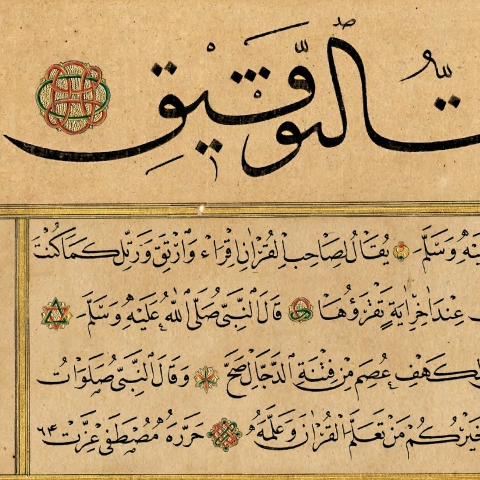 التوفيق
وسلم يقال لصاحب القرآن اقراء وارتق ورتل كما كنت
عند اخر اية تقرؤها قال النبى صلى الله عليه وسلم
كهف عصم من فتنة الدجال صح وقال النبى صلوات
خيركم من تعلم القرآن وعلمه حرره مصطفى عزت ٦٤